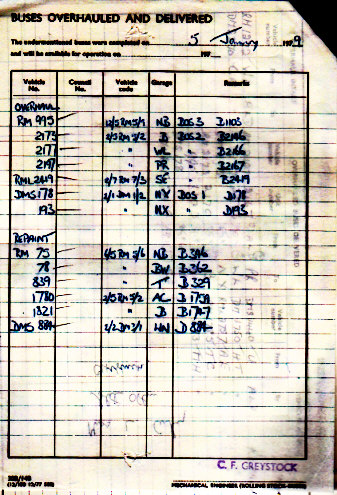 BUSES OVERHAULED AND DELIVERED
The undermentioned buses were completed on 5 January 1979
and will be available for operation on 197
Vehicle No. Council No. Vehicle code Garage Remarks
OVERHAUL
RM 995 2/5 RM 5/9 NB BOS 3 B1103
2173 2/5 RM 5/2 B BOS 2 B2146
2177 " WL " B2166
2197 " PR " B2167
RML 2419 0/7 RM 7/3 SE " B2419
DMS 178 2/1 DM 1/2 NX BOS 1 D178
193 " NX " D193
REPAINT
RM 75 4/5 RM 5/6 NB B346
78 " BW B362
839 " T B329
1780 2/5 RM 5/2 AC B1739
1321 " B B1747
DMS 884 2/2 DM 3/1 D884
C. F. GREYSTOCK
MECHANICAL ENGINEER (ROLLING STOCK—BUSES)